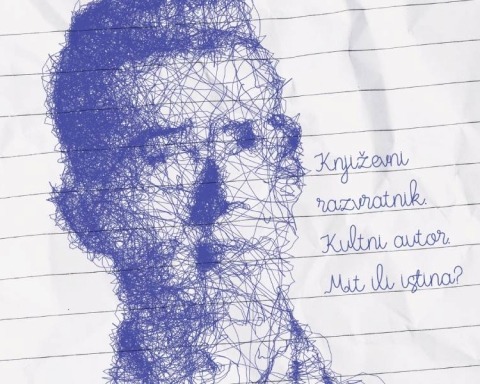 Književni
razvratnik.
Kultni autor.
Mit ili istina?